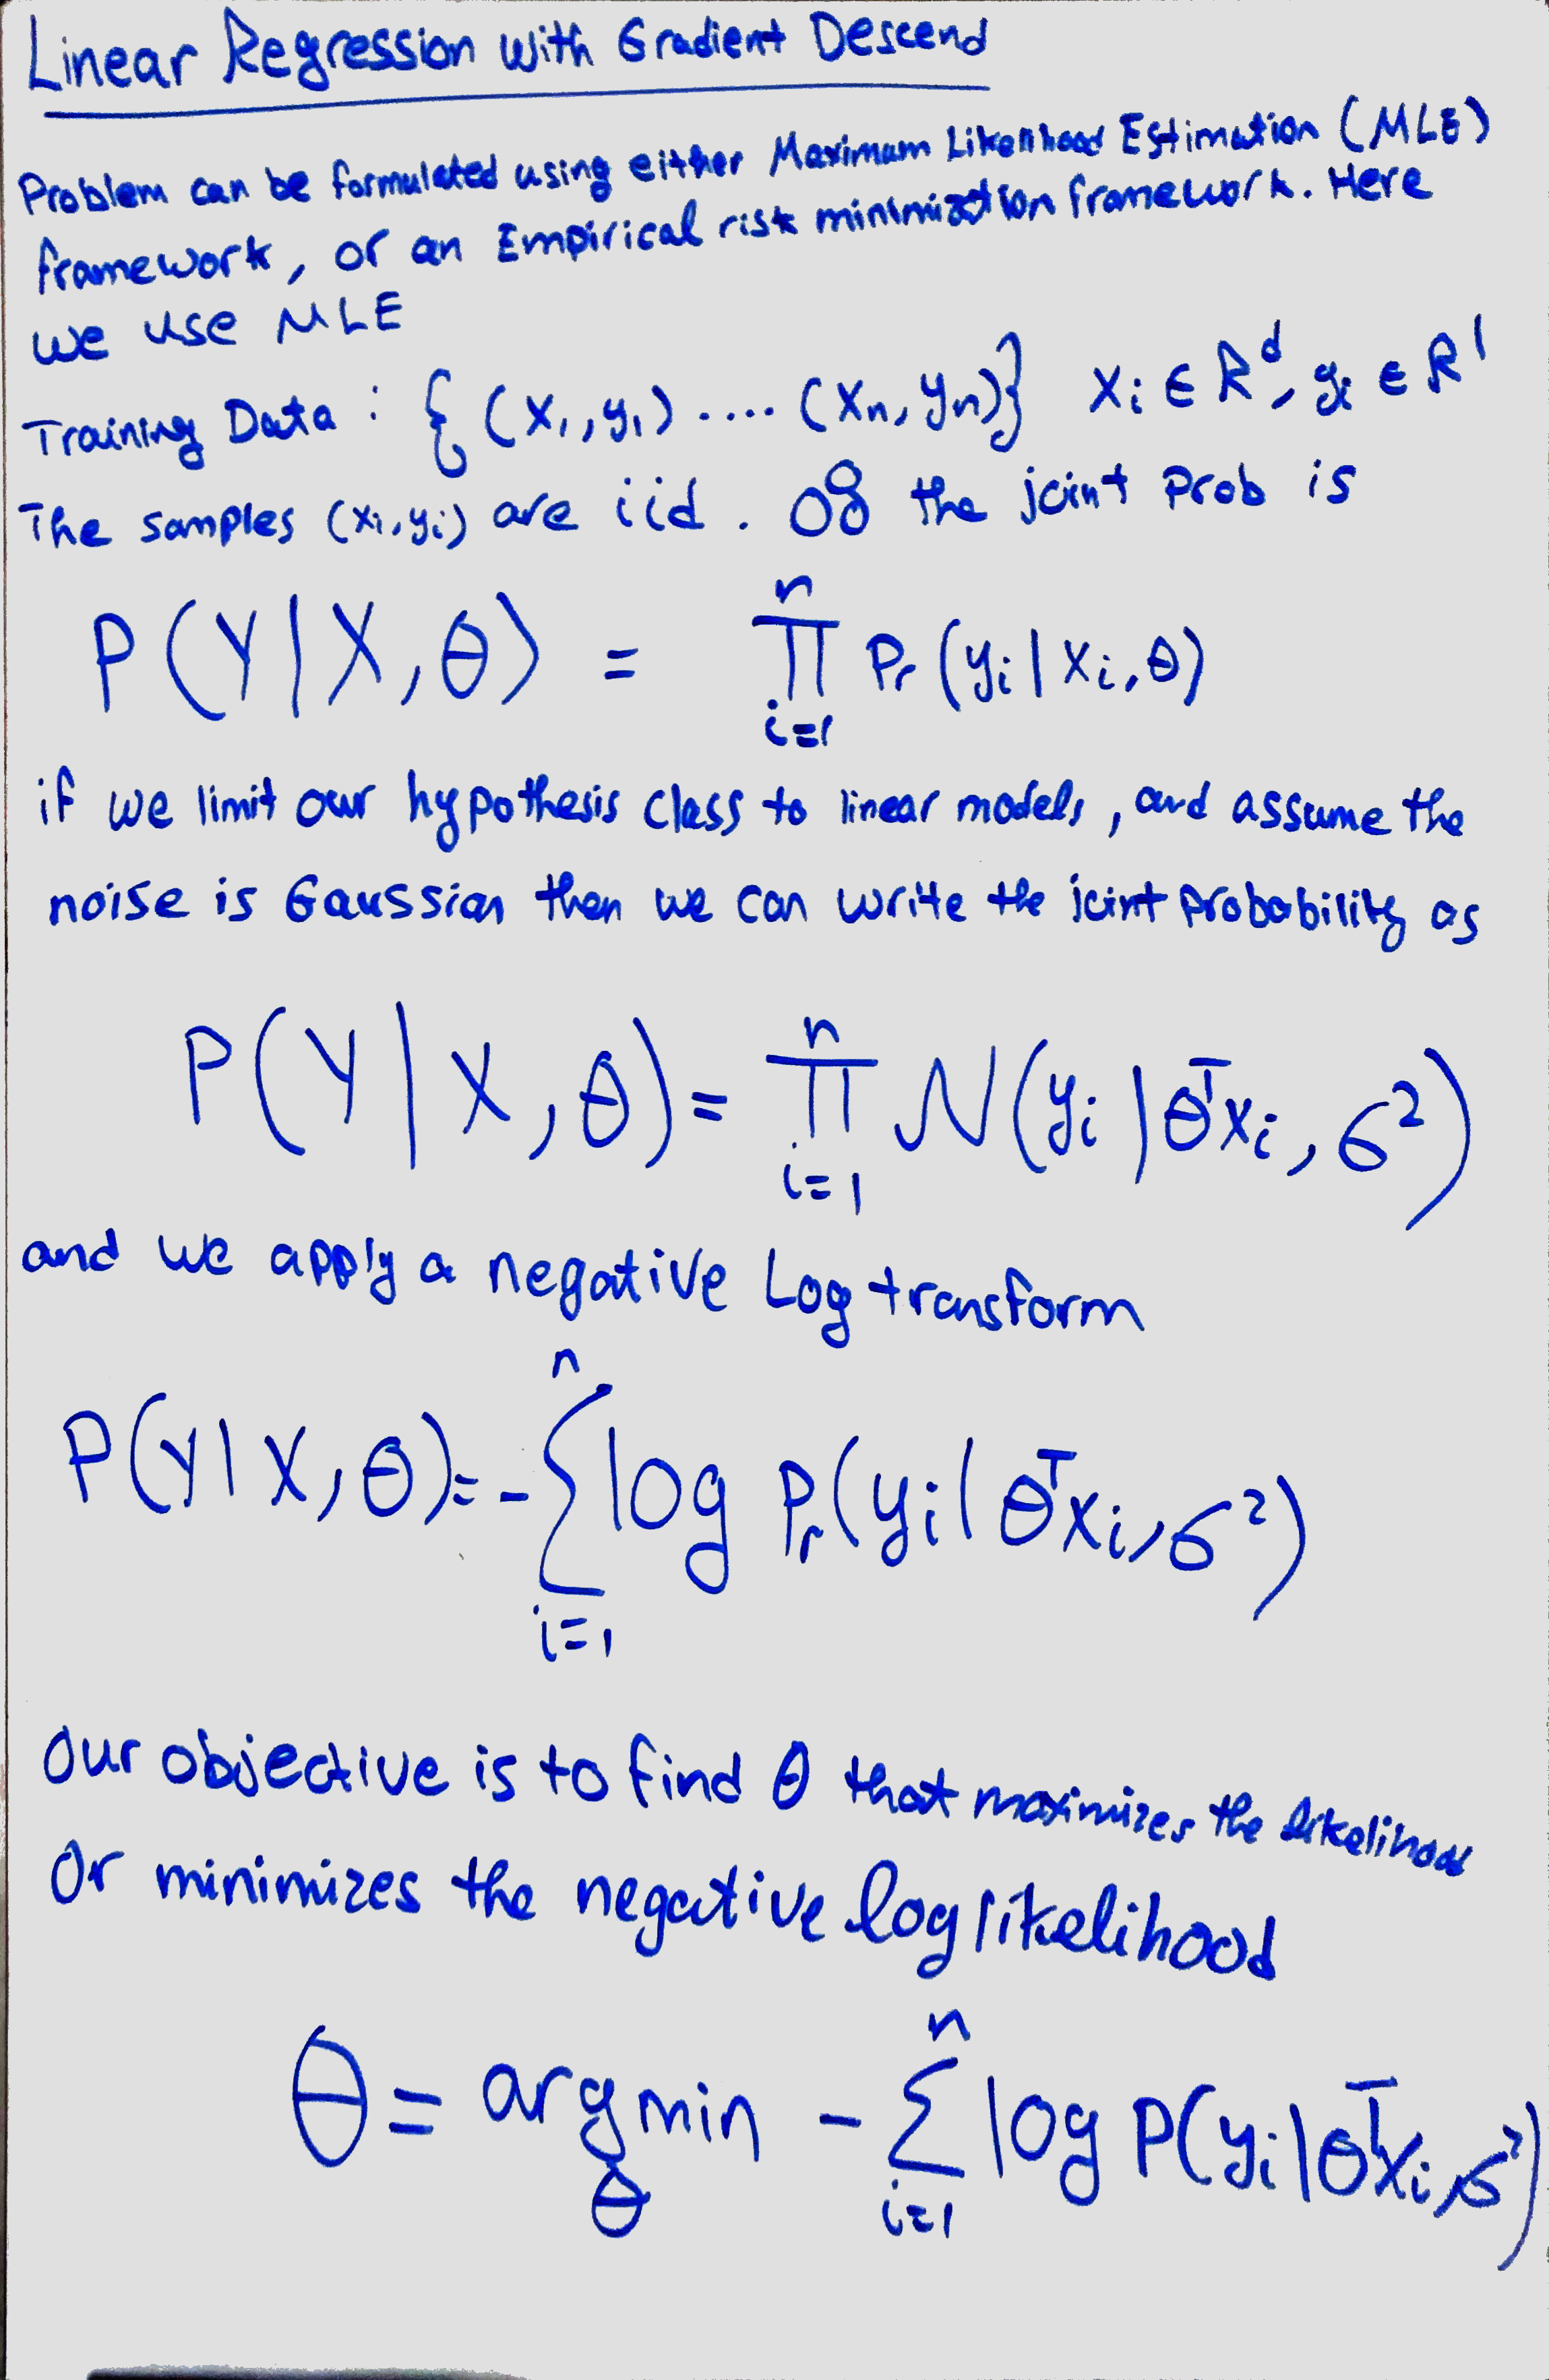 Linear Regression with Gradient Descend
Problem can be formulated using either Maximum Likelihood Estimation (MLE)
framework, or an Empirical risk minimization framework. Here
we use MLE
Training Data : { (x₁, y₁) .... (xₙ, yₙ)} xᵢ ∈ R^d, yᵢ ∈ R^1
The samples (xᵢ, yᵢ) are iid . the joint prob is
P(Y|X,θ) = ∏_{i=1}^{n} Pr(yᵢ|xᵢ,θ)
if we limit our hypothesis class to linear models, and assume the
noise is Gaussian then we can write the joint probability as
P(Y|X,θ) = ∏_{i=1}^{n} N(yᵢ|θ^T xᵢ, σ²)
and we apply a negative Log transform
P(Y|X,θ) = - ∑_{i=1}^{n} log Pr(yᵢ|θ^T xᵢ, σ²)
Our objective is to find θ that maximizes the likelihood
Or minimizes the negative log likelihood
θ = argmin_θ - ∑_{i=1}^{n} log P(yᵢ|θ^T xᵢ, σ²)